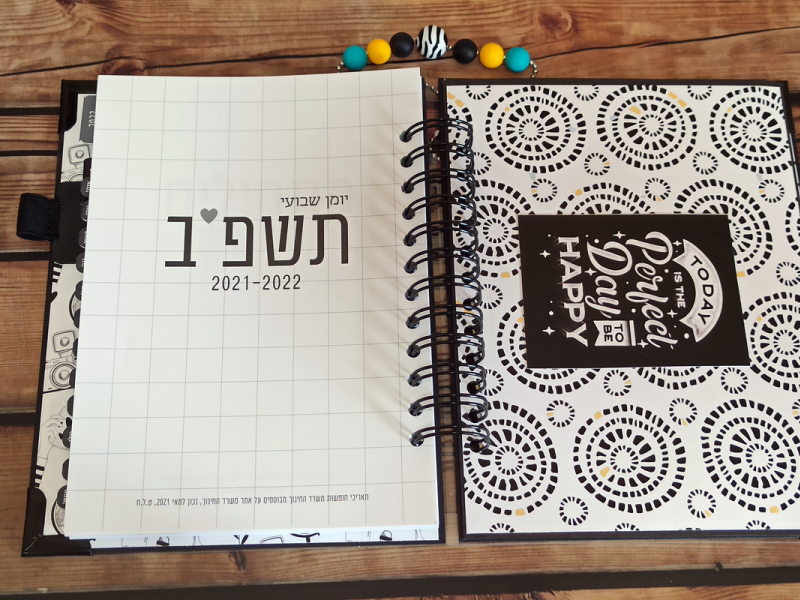 יומן שבועי
תשפ״ב
2021-2022
תאריכי חופשות משרד החינוך מבוססים על אתר משרד החינוך, נכון למאי 2021. ט.ל.ח
TODAY
IS THE
Perfect
Day
TO BE
HAPPY
2022